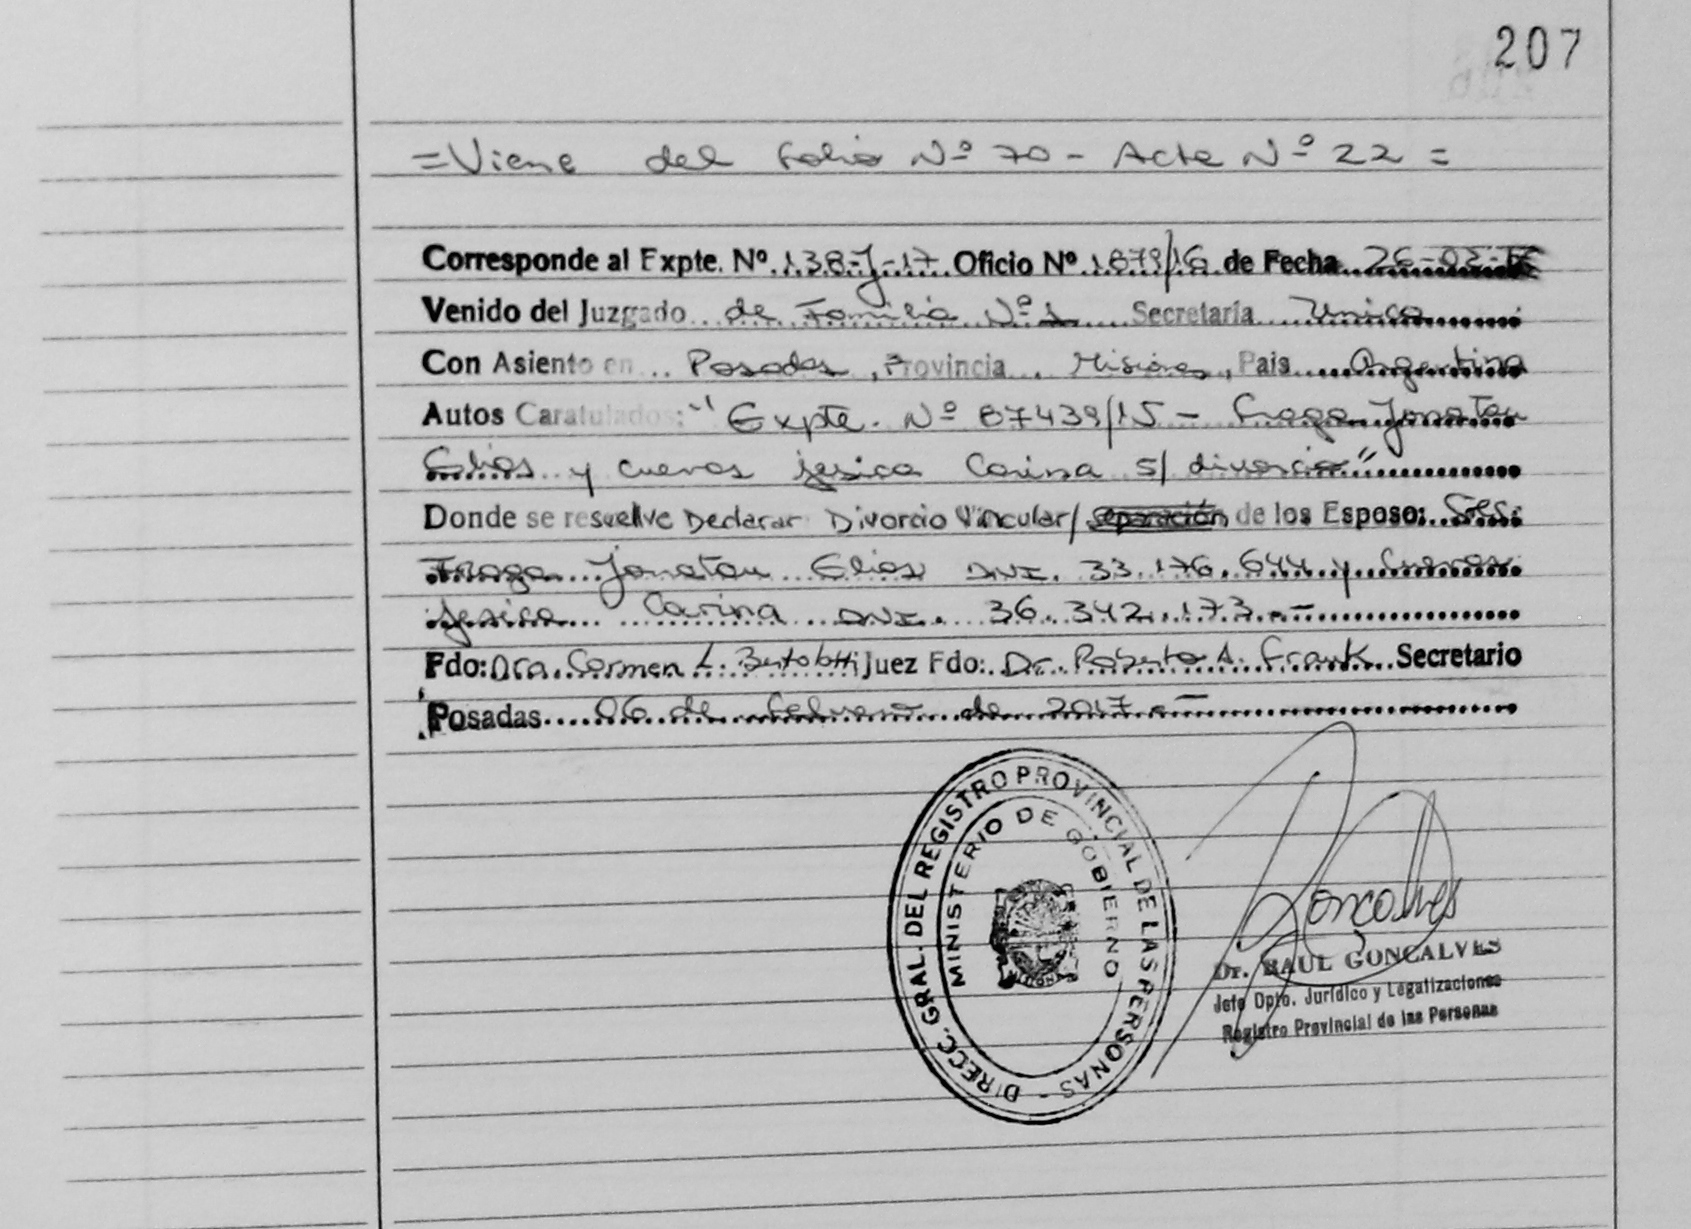 207
=Viene del folio Nº 70 - Acta Nº 22 =
Corresponde al Expte. Nº 138-J-17 Oficio Nº 1879/16 de Fecha 26-02-
Venido del Juzgado de Familia Nº 1 Secretaría Unica
Con Asiento en Posadas, Provincia Misiones, Pais Argentina
Autos Caratulados: "Expte. Nº 87439/15 - Fraga Jonatan
Elias y Cuevas Jesica Carina s/ divorcio"
Donde se resuelve Declarar Divorcio Vincular/ separación de los Esposo: Sres.
Fraga Jonatan Elias DNI. 33.176.644 y Cuevas
Jesica Carina DNI. 36.342.173.-
Fdo: Dra. Carmen L. Bertolotti Juez Fdo: Dr. Roberto A. Frank Secretario
Posadas 06 de febrero de 2017.-
DIRECC. GRAL. DEL REGISTRO PROVINCIAL DE LAS PERSONAS -
MINISTERIO DE GOBIERNO
Goncalves
Dr. RAUL GONCALVES
Jefe Dpto. Jurídico y Legalizaciones
Registro Provincial de las Personas